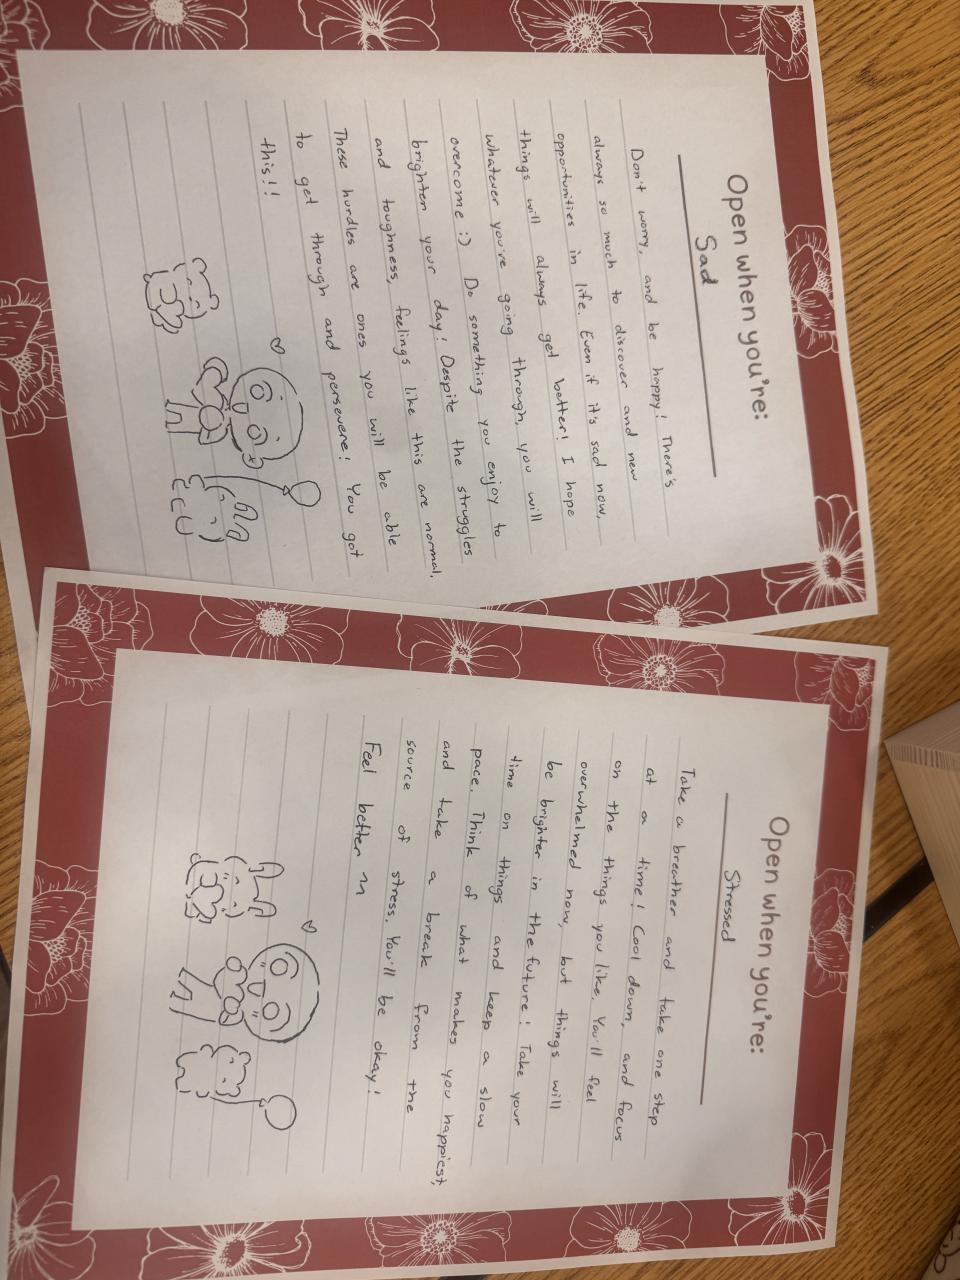 Open when you're:
Sad
Don't worry, and be happy! There's
always so much to discover and new
opportunities in life. Even if it's sad now,
things will always get better! I hope
whatever you're going through, you will
overcome :) Do something you enjoy to
brighten your day! Despite the struggles
and toughness, feelings like this are normal.
These hurdles are ones you will be able
to get through and persevere! You got
this!!
Open when you're:
Stressed
Take a breather and take one step
at a time! Cool down, and focus
on the things you like. You'll feel
overwhelmed now, but things will
be brighter in the future! Take your
time on things and keep a slow
pace. Think of what makes you happiest,
and take a break from the
source of stress. You'll be okay!
Feel better